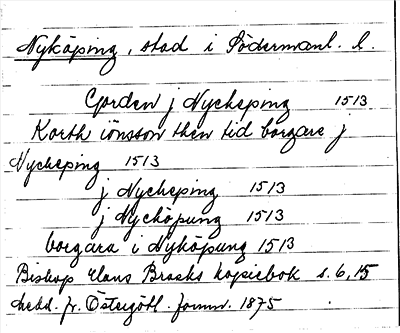 Nyköping, stad i Södermanl. l.
Gorden j Nycheping 1513
Korth iönsson then tid borgare j
Nycheping 1513
j Nycheping 1513
j Nychöpung 1513
borgara i Nyköpung 1513
Biskop Hans Brasks kopiebok s. 6, 15
Medd. fr. Östergötl. fornm. 1875